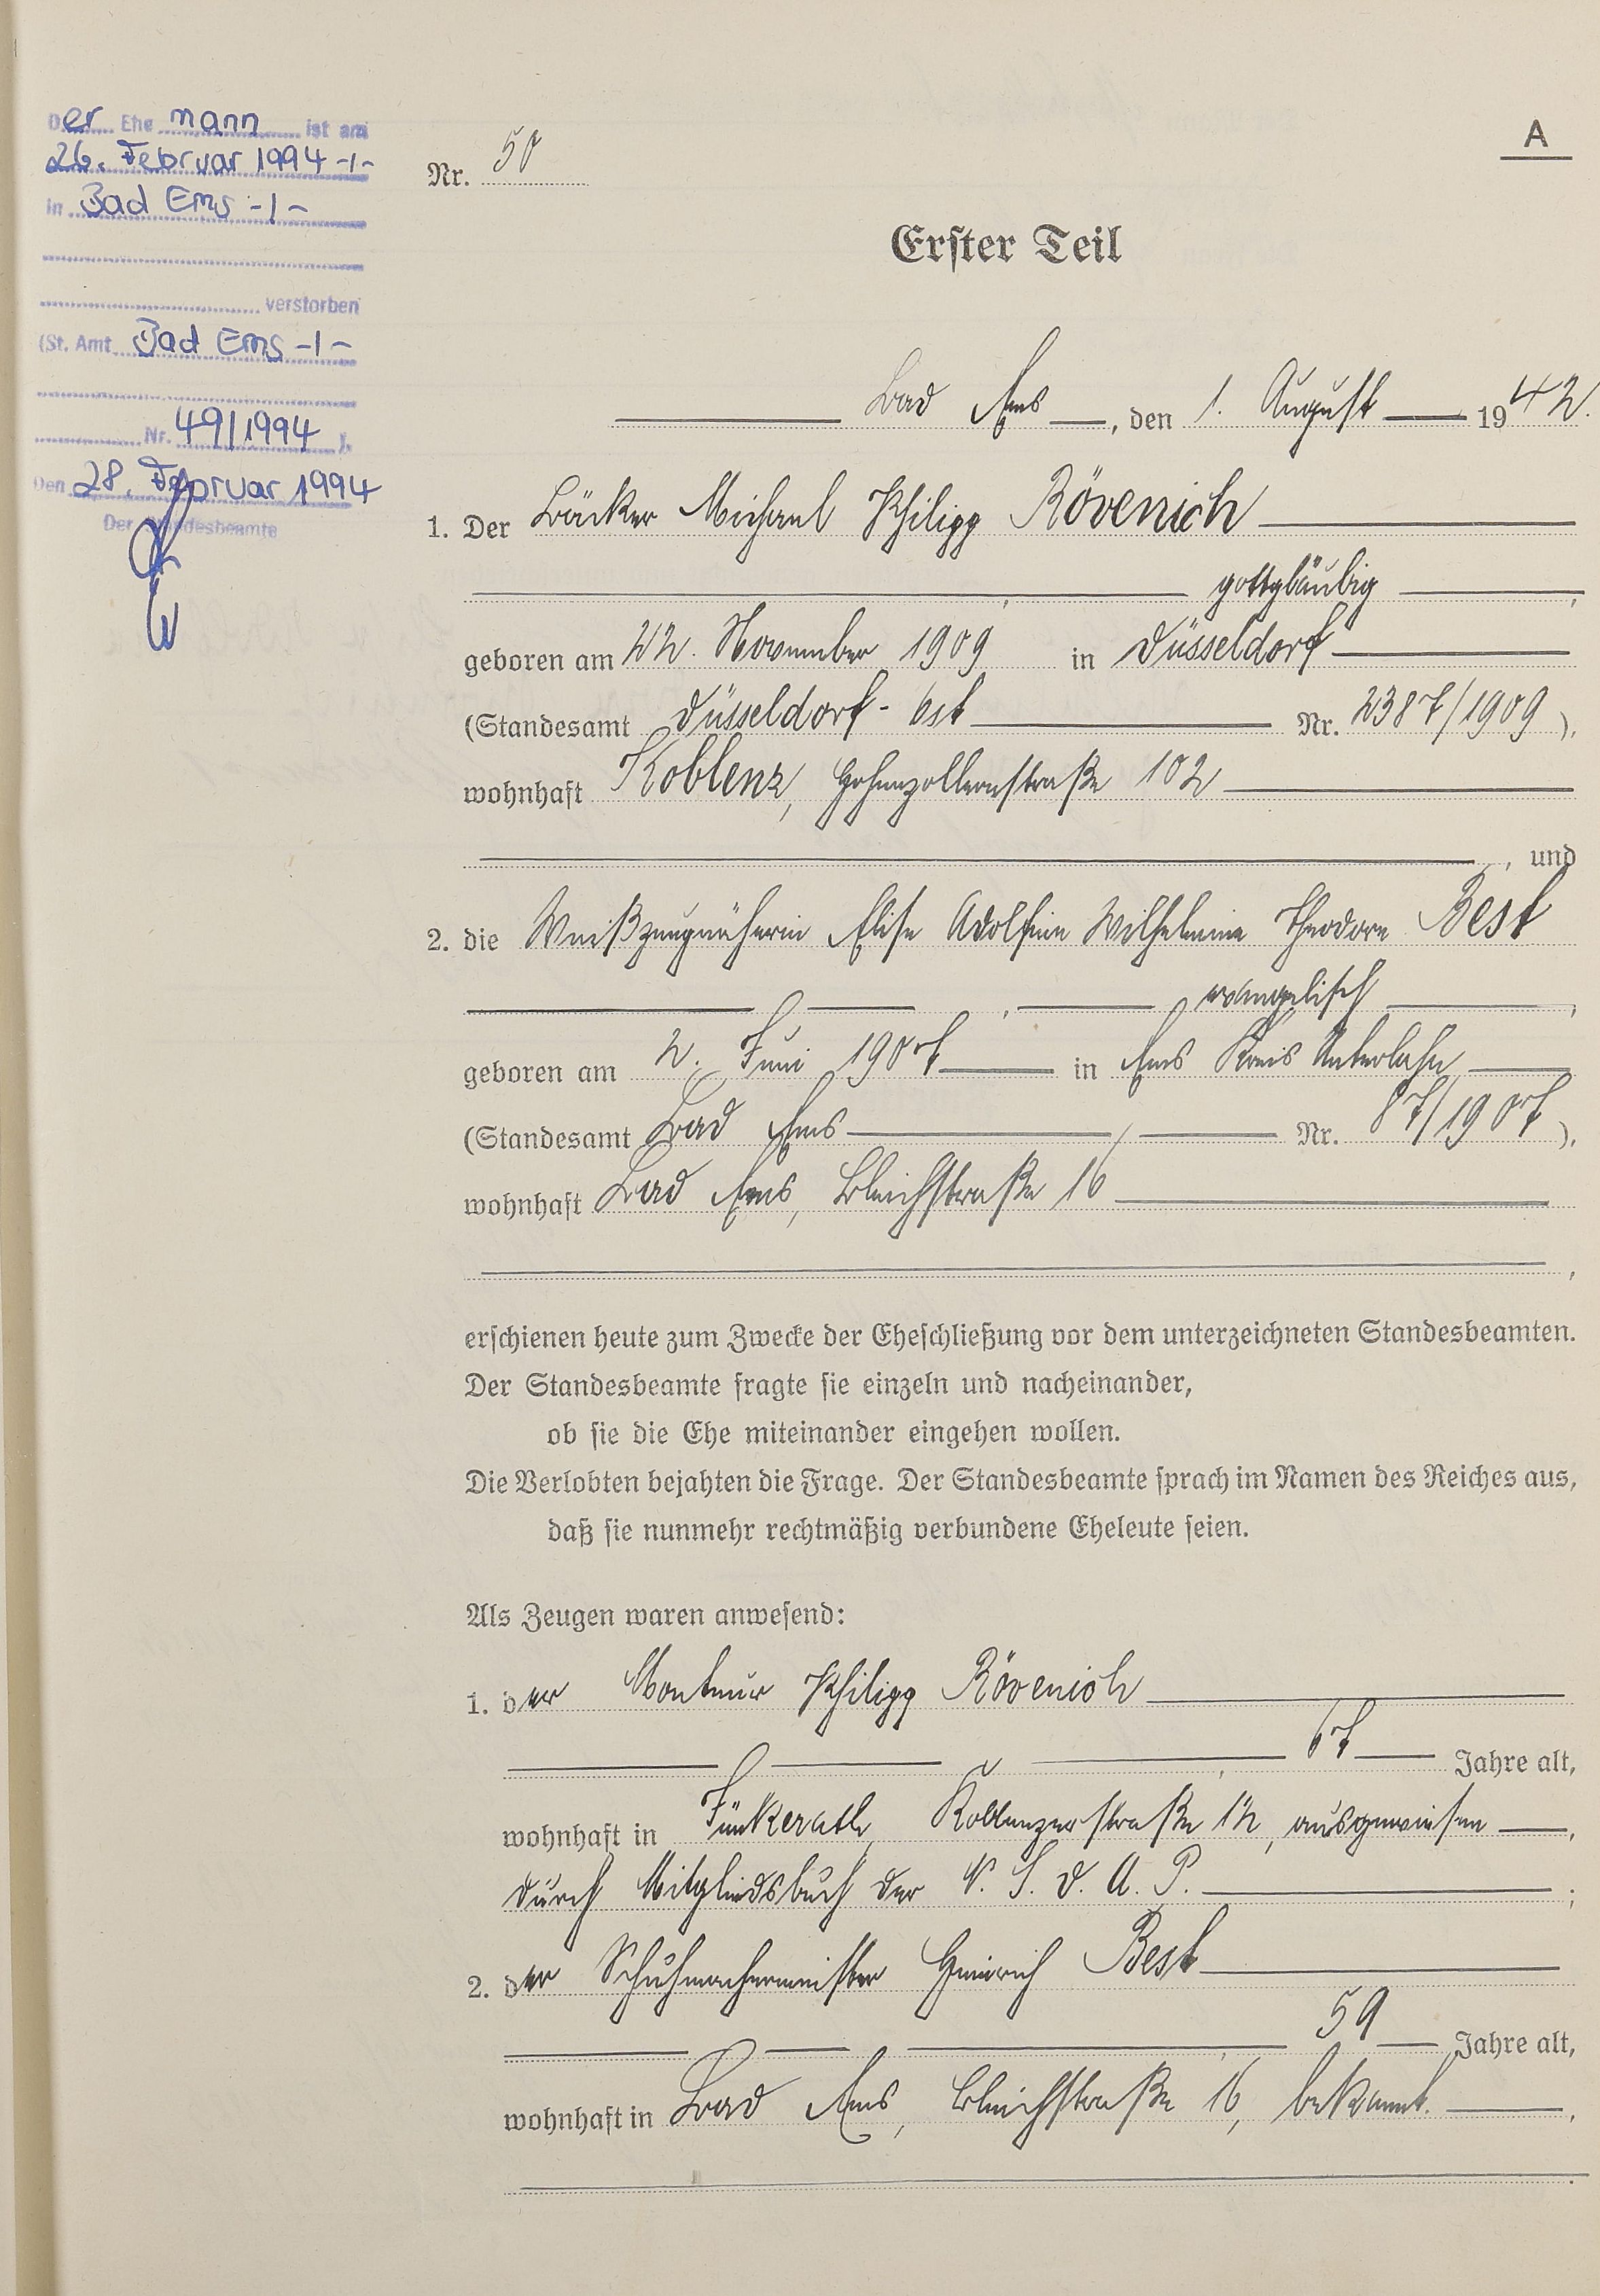 Der Ehe mann ist am
26. Februar 1994 -/-
in Bad Ems -/-
verstorben
(St. Amt Bad Ems -/-
Nr. 49/1994 ).
Den 28. Februar 1994
Der Standesbeamte
A
Nr. 50
Erster Teil
Bad Ems, den 1. August 1942.
1. Der Bäcker Michael Philipp Rövenich
, gottgläubig,
geboren am 22. November 1909 in Düsseldorf
(Standesamt Düsseldorf-Ost Nr. 2387/1909),
wohnhaft Koblenz, Hohenzollernstraße 102
, und
2. die Weißzeugnäherin Elise Adolfine Wilhelmine Theodore Best
, evangelisch,
geboren am 2. Juni 1907 in Ems Kreis Unterlahn
(Standesamt Bad Ems Nr. 87/1907),
wohnhaft Bad Ems, Bleichstraße 16
,
erschienen heute zum Zwecke der Eheschließung vor dem unterzeichneten Standesbeamten.
Der Standesbeamte fragte sie einzeln und nacheinander,
ob sie die Ehe miteinander eingehen wollen.
Die Verlobten bejahten die Frage. Der Standesbeamte sprach im Namen des Reiches aus,
daß sie nunmehr rechtmäßig verbundene Eheleute seien.
Als Zeugen waren anwesend:
1. der Monteur Philipp Rövenich
, Jahre alt,
wohnhaft in Jünkerath, Koblenzerstraße 12, ausgewiesen,
durch Mitgliedsbuch der N. S. D. A. P. ;
2. der Schuhmachermeister Heinrich Best
, 59 Jahre alt,
wohnhaft in Bad Ems, Bleichstraße 16, bekannt.,
.